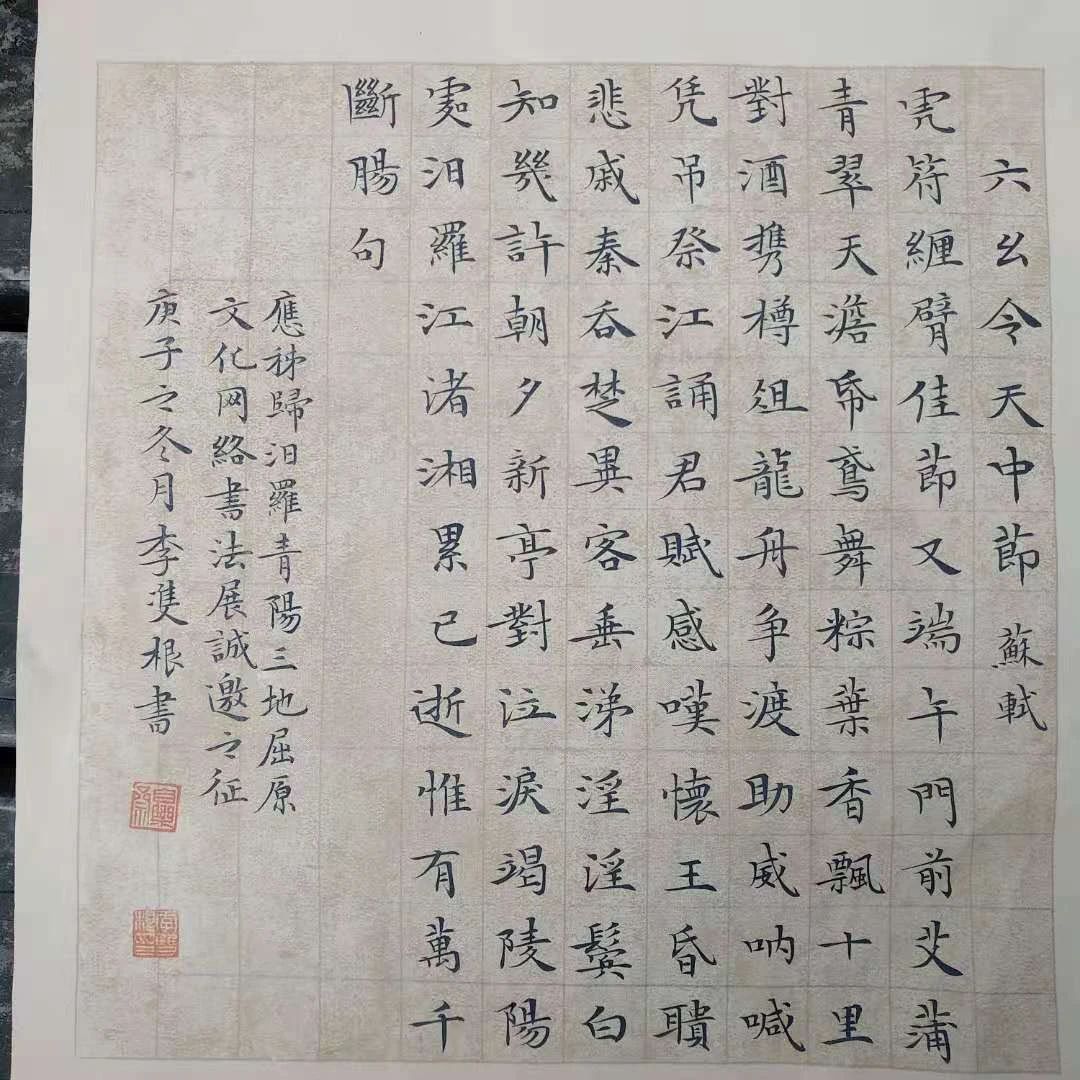 六幺令天中節 蘇軾
虎符纏臂佳節又端午門前艾蒲
青翠天澹帋鳶舞粽葉香飄十里
對酒携樽俎龍舟争渡助威呐喊
凭吊祭江誦君賦感嘆懷王昏聵
悲戚秦吞楚異客垂涕淫淫鬢白
知幾許朝夕新亭對泣淚竭陵陽
處汨羅江渚湘累已逝惟有萬千
斷腸句
應秭歸汨羅青陽三地屈原
文化网絡書法展誠邀之征
庚子之冬月李隻根書